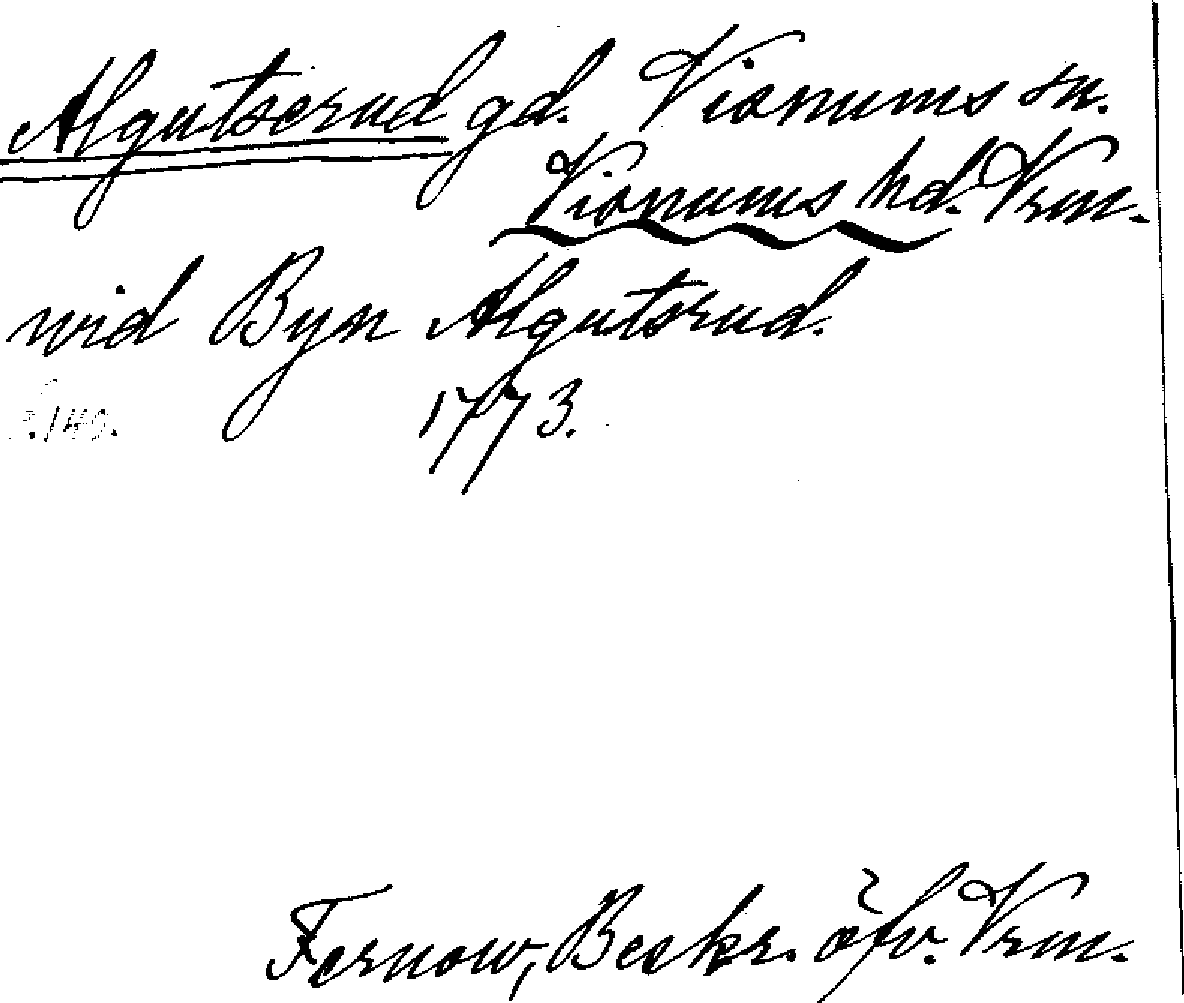 Algutserud gd. Visnums sn.
Visnums hd. Vrm.
wid Byn Algutsrud.
s. 149. 1773.
Fernow, Beskr. öfv. Vrm.